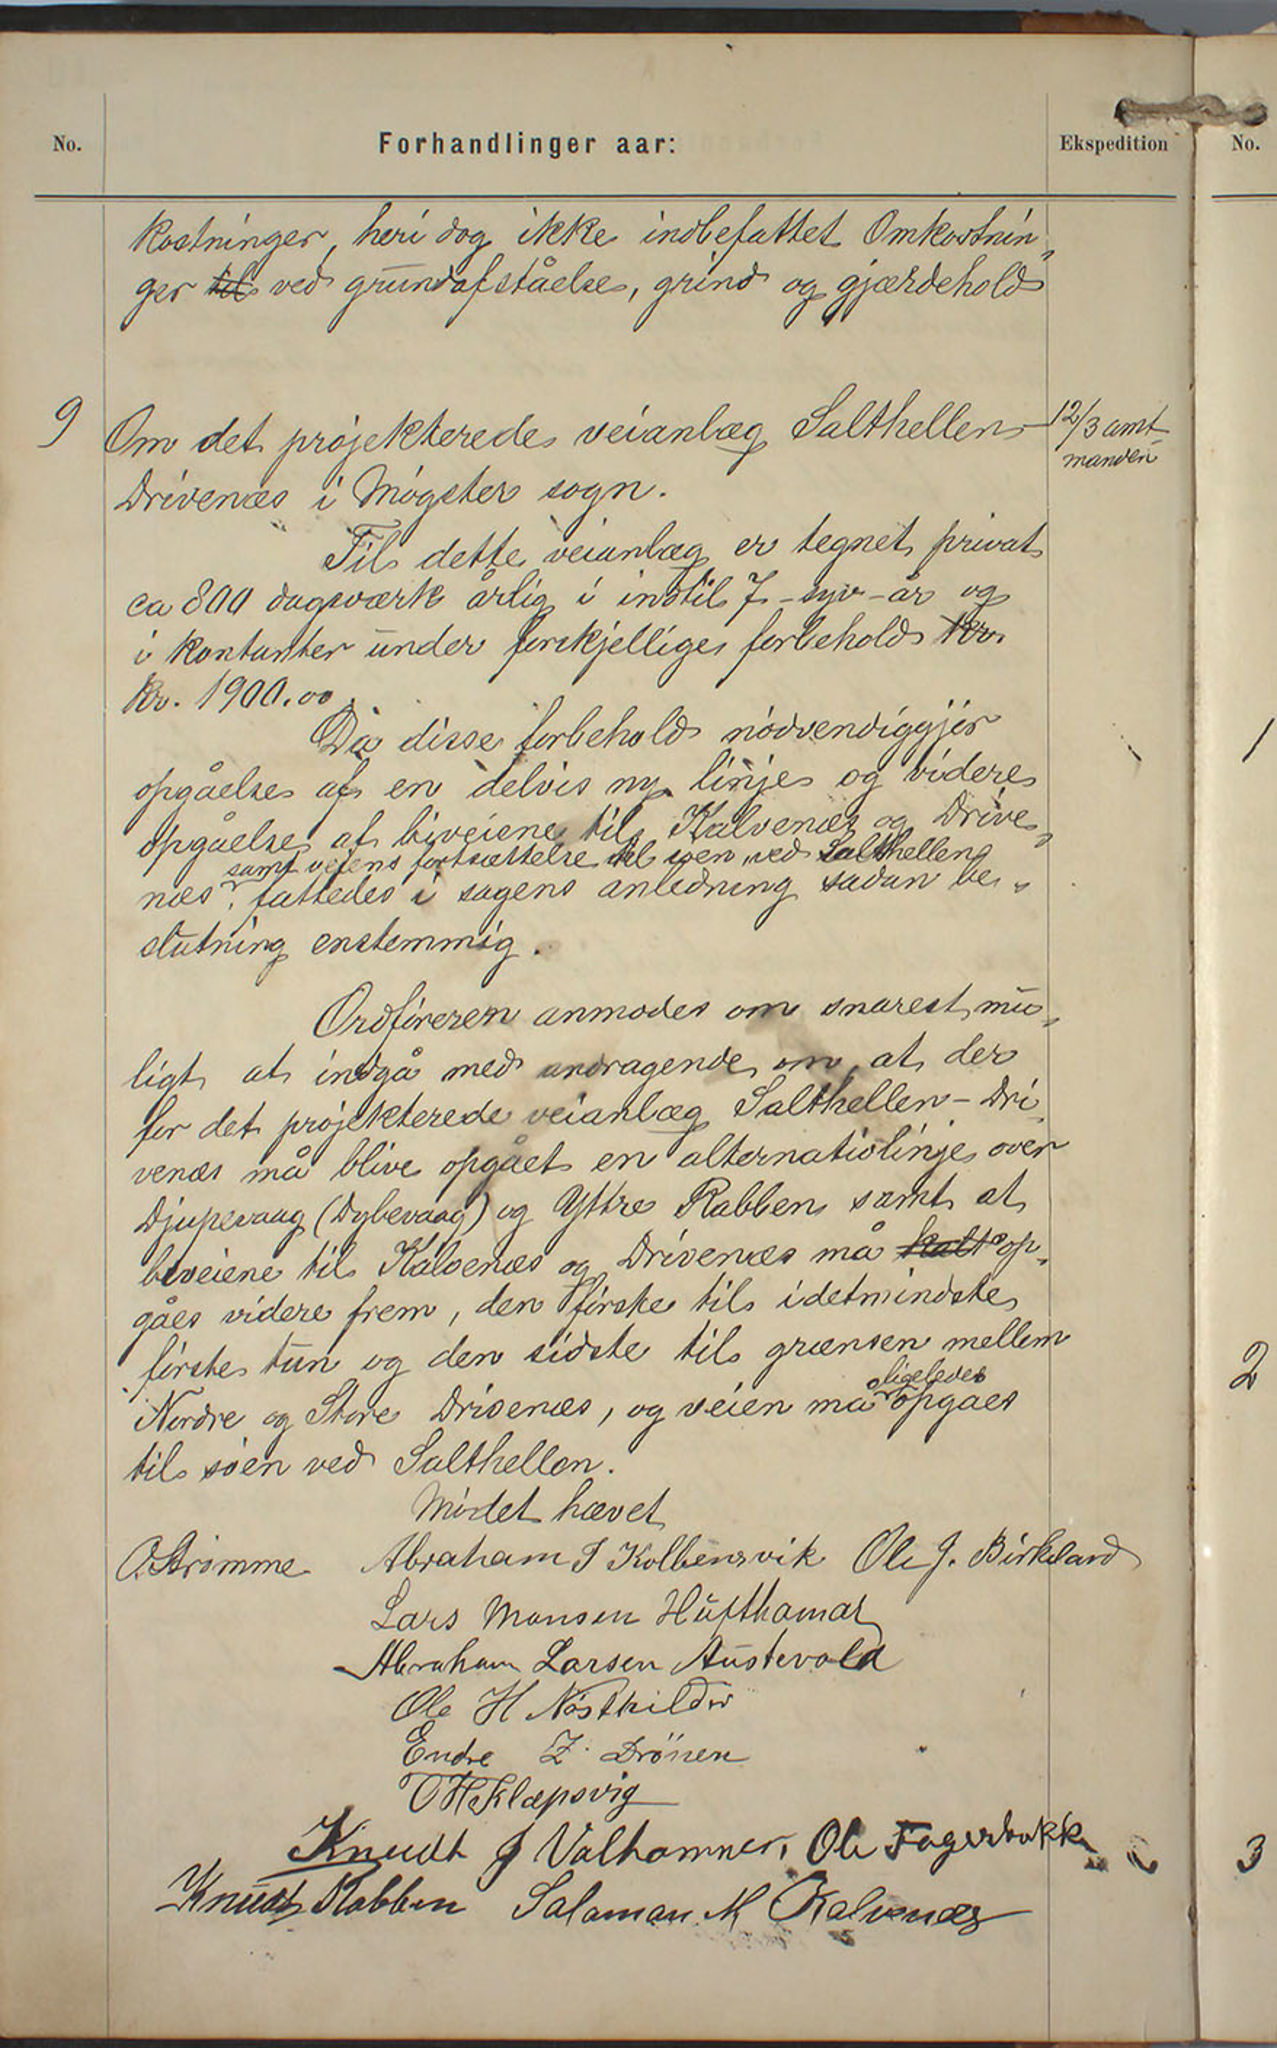 No.
Forhandlinger aar:
Ekspedition
No.
kostninger, heri dog ikke indbefattet Omkostnin„
ger til ved grundafståelse, grind og gjærdehold
9
Om det projekterede veianlæg Salthellen-
12/3 amt-
manden
Drivenæs i Møgster sogn.
Til dette veianlæg er tegnet privat
ca 800 dagsværk årlig i indtil 7-syv-år og
i kontanter under forskjellige forbehold kr.
kr. 1900.00.
Da disse forbehold nødvendiggjør
1
opgåelse af en delvis ny linje og videre
opgåelse af biveiene til Kalvenæs og Drive„
samt veiens fortsættelse til søen ved Salthellen
næs, fattedes i sagens anledning sådan be„
slutning enstemmig.
Ordføreren anmodes om snarest mu„
ligt at indgå med andragende om, at der
for det projekterede veianlæg Salthellen-Dri„
venæs må blive opgået en alternativlinje over
Djupevaag (Dybevaag) og Yttre Rabben samt at
biveiene til Kalvenæs og Drivenæs må op„
gåes videre frem, den første til idetmindste
første tun og den sidste til grænsen mellem
2
ligeledes
Nordre og Store Drivenæs, og veien må opgåes
til søen ved Salthellen.
Mødet hævet
O. Strømme Abraham J Kolbensvik Ole J. Birkeland
Lars Monsen Hufthamar
Abraham Larsen Austevold
Ole H Nøstkilder
Endre Z. Drönen
O H Klæpsvig
Knudt J Valhammer, Ole Fagerbakke
3
Knudt Rabben Salaman M Kalvenæs